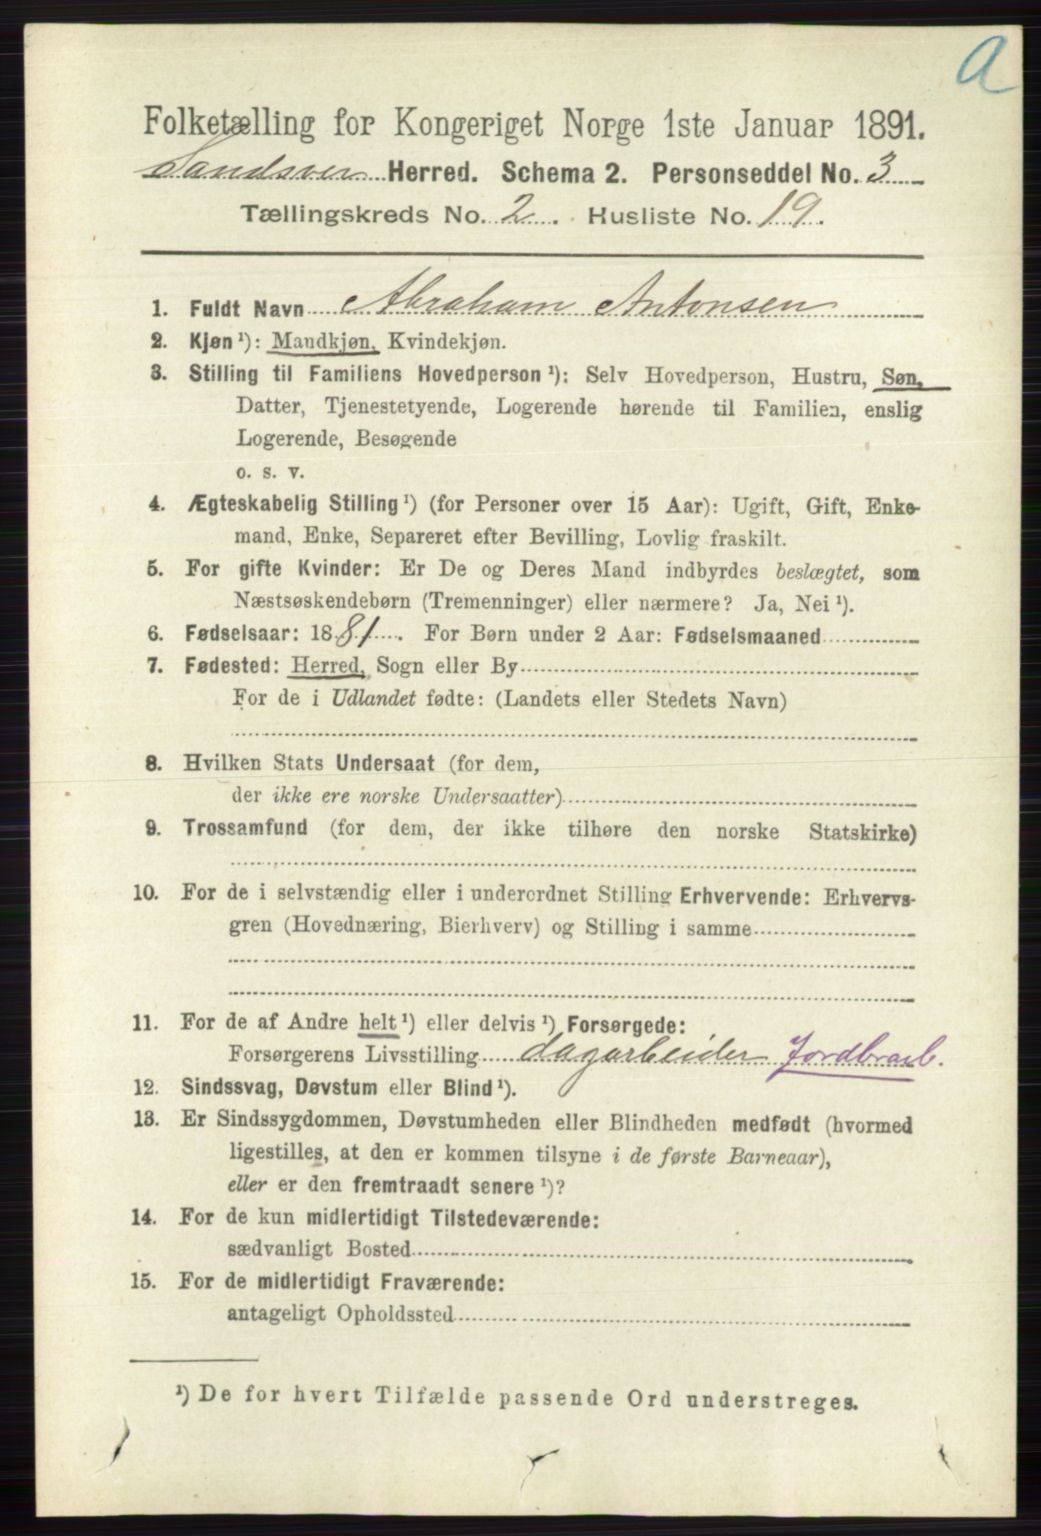 a
Folketælling for Kongeriget Norge 1ste Januar 1891.
Sandsver Herred. Schema 2. Personseddel No. 3
Tællingskreds No. 2. Husliste No. 19.
1. Fuldt Navn Abraham Antonsen
2. Kjøn ¹): Mandkjøn, Kvindekjøn.
3. Stilling til Familiens Hovedperson ¹): Selv Hovedperson, Hustru, Søn,
Datter, Tjenestetyende, Logerende hørende til Familien, enslig
Logerende, Besøgende
o. s. v.
4. Ægteskabelig Stilling ¹) (for Personer over 15 Aar): Ugift, Gift, Enke-
mand, Enke, Separeret efter Bevilling, Lovlig fraskilt.
5. For gifte Kvinder: Er De og Deres Mand indbyrdes beslægtet, som
Næstsøskendebørn (Tremenninger) eller nærmere? Ja, Nei ¹).
6. Fødselsaar: 1881. For Børn under 2 Aar: Fødselsmaaned
7. Fødested: Herred, Sogn eller By
For de i Udlandet fødte: (Landets eller Stedets Navn)
8. Hvilken Stats Undersaat (for dem,
der ikke ere norske Undersaatter)
9. Trossamfund (for dem, der ikke tilhøre den norske Statskirke)
10. For de i selvstændig eller i underordnet Stilling Erhvervende: Erhvervs-
gren (Hovednæring, Bierhverv) og Stilling i samme
11. For de af Andre helt ¹) eller delvis ¹) Forsørgede:
Forsørgerens Livsstilling dagarbeider Jordbrarb.
12. Sindssvag, Døvstum eller Blind ¹).
13. Er Sindssygdommen, Døvstumheden eller Blindheden medfødt (hvormed
ligestilles, at den er kommen tilsyne i de første Barneaar),
eller er den fremtraadt senere ¹)?
14. For de kun midlertidigt Tilstedeværende:
sædvanligt Bosted
15. For de midlertidigt Fraværende:
antageligt Opholdssted
¹) De for hvert Tilfælde passende Ord understreges.